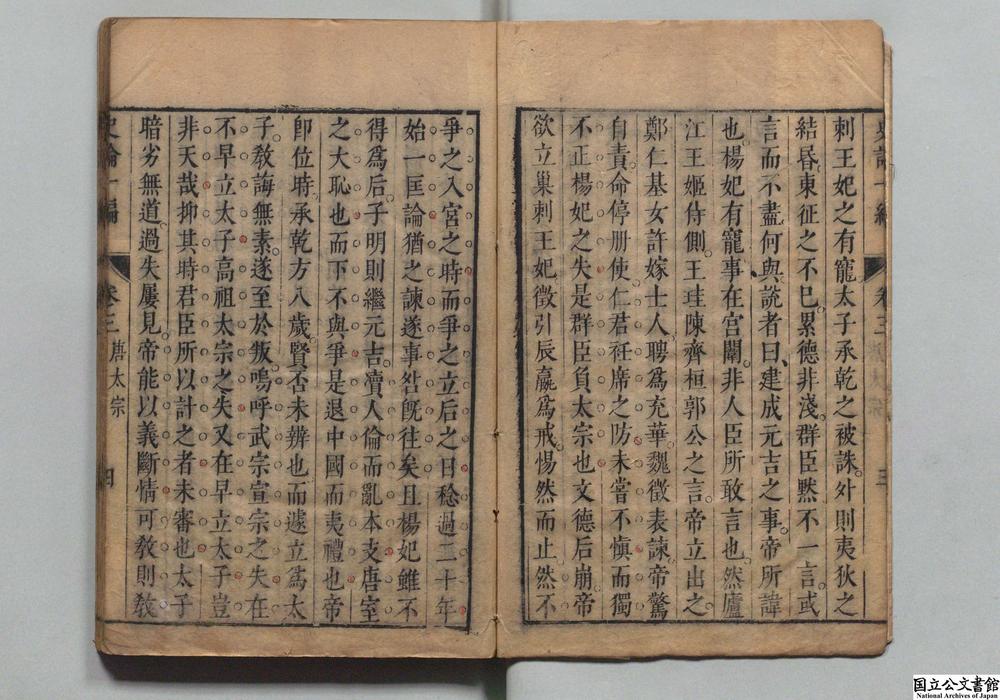 刺王妃之有寵太子承乾之被誅外則夷狄之
結昏東征之不巳累德非淺群臣默不一言或
言而不盡何與說者曰建成元吉之事帝所諱
也楊妃有寵事在宮闈非人臣所敢言也然廬
江王姬侍側王珪陳齊桓郭公之言帝立出之
鄭仁基女許嫁士人聘爲充華魏徵表諫帝驚
自責命停册使仁君衽席之防未嘗不愼而獨
不正楊妃之失是群臣負太宗也文德后崩帝
欲立巢刺王妃徵引辰嬴爲戒惕然而止然不
史論一編
卷三
唐太宗
三
爭之入宮之時而爭之立后之日稔過二十年
始一匡論猶之諫遂事咎既往矣且楊妃雖不
得爲后子明則繼元吉瀆人倫而亂本支唐室
之大恥也而下不與爭是退中國而夷禮也帝
卽位時承乾方八歲賢否未辨也而遽立爲太
子敎誨無素遂至於叛嗚呼武宗宣宗之失在
不早立太子高祖太宗之失又在早立太子豈
非天哉抑其時君臣所以計之者未審也太子
暗劣無道過失屢見帝能以義斷情可敎則敎
史論一編
卷三
唐太宗
四
国立公文書館
National Archives of Japan